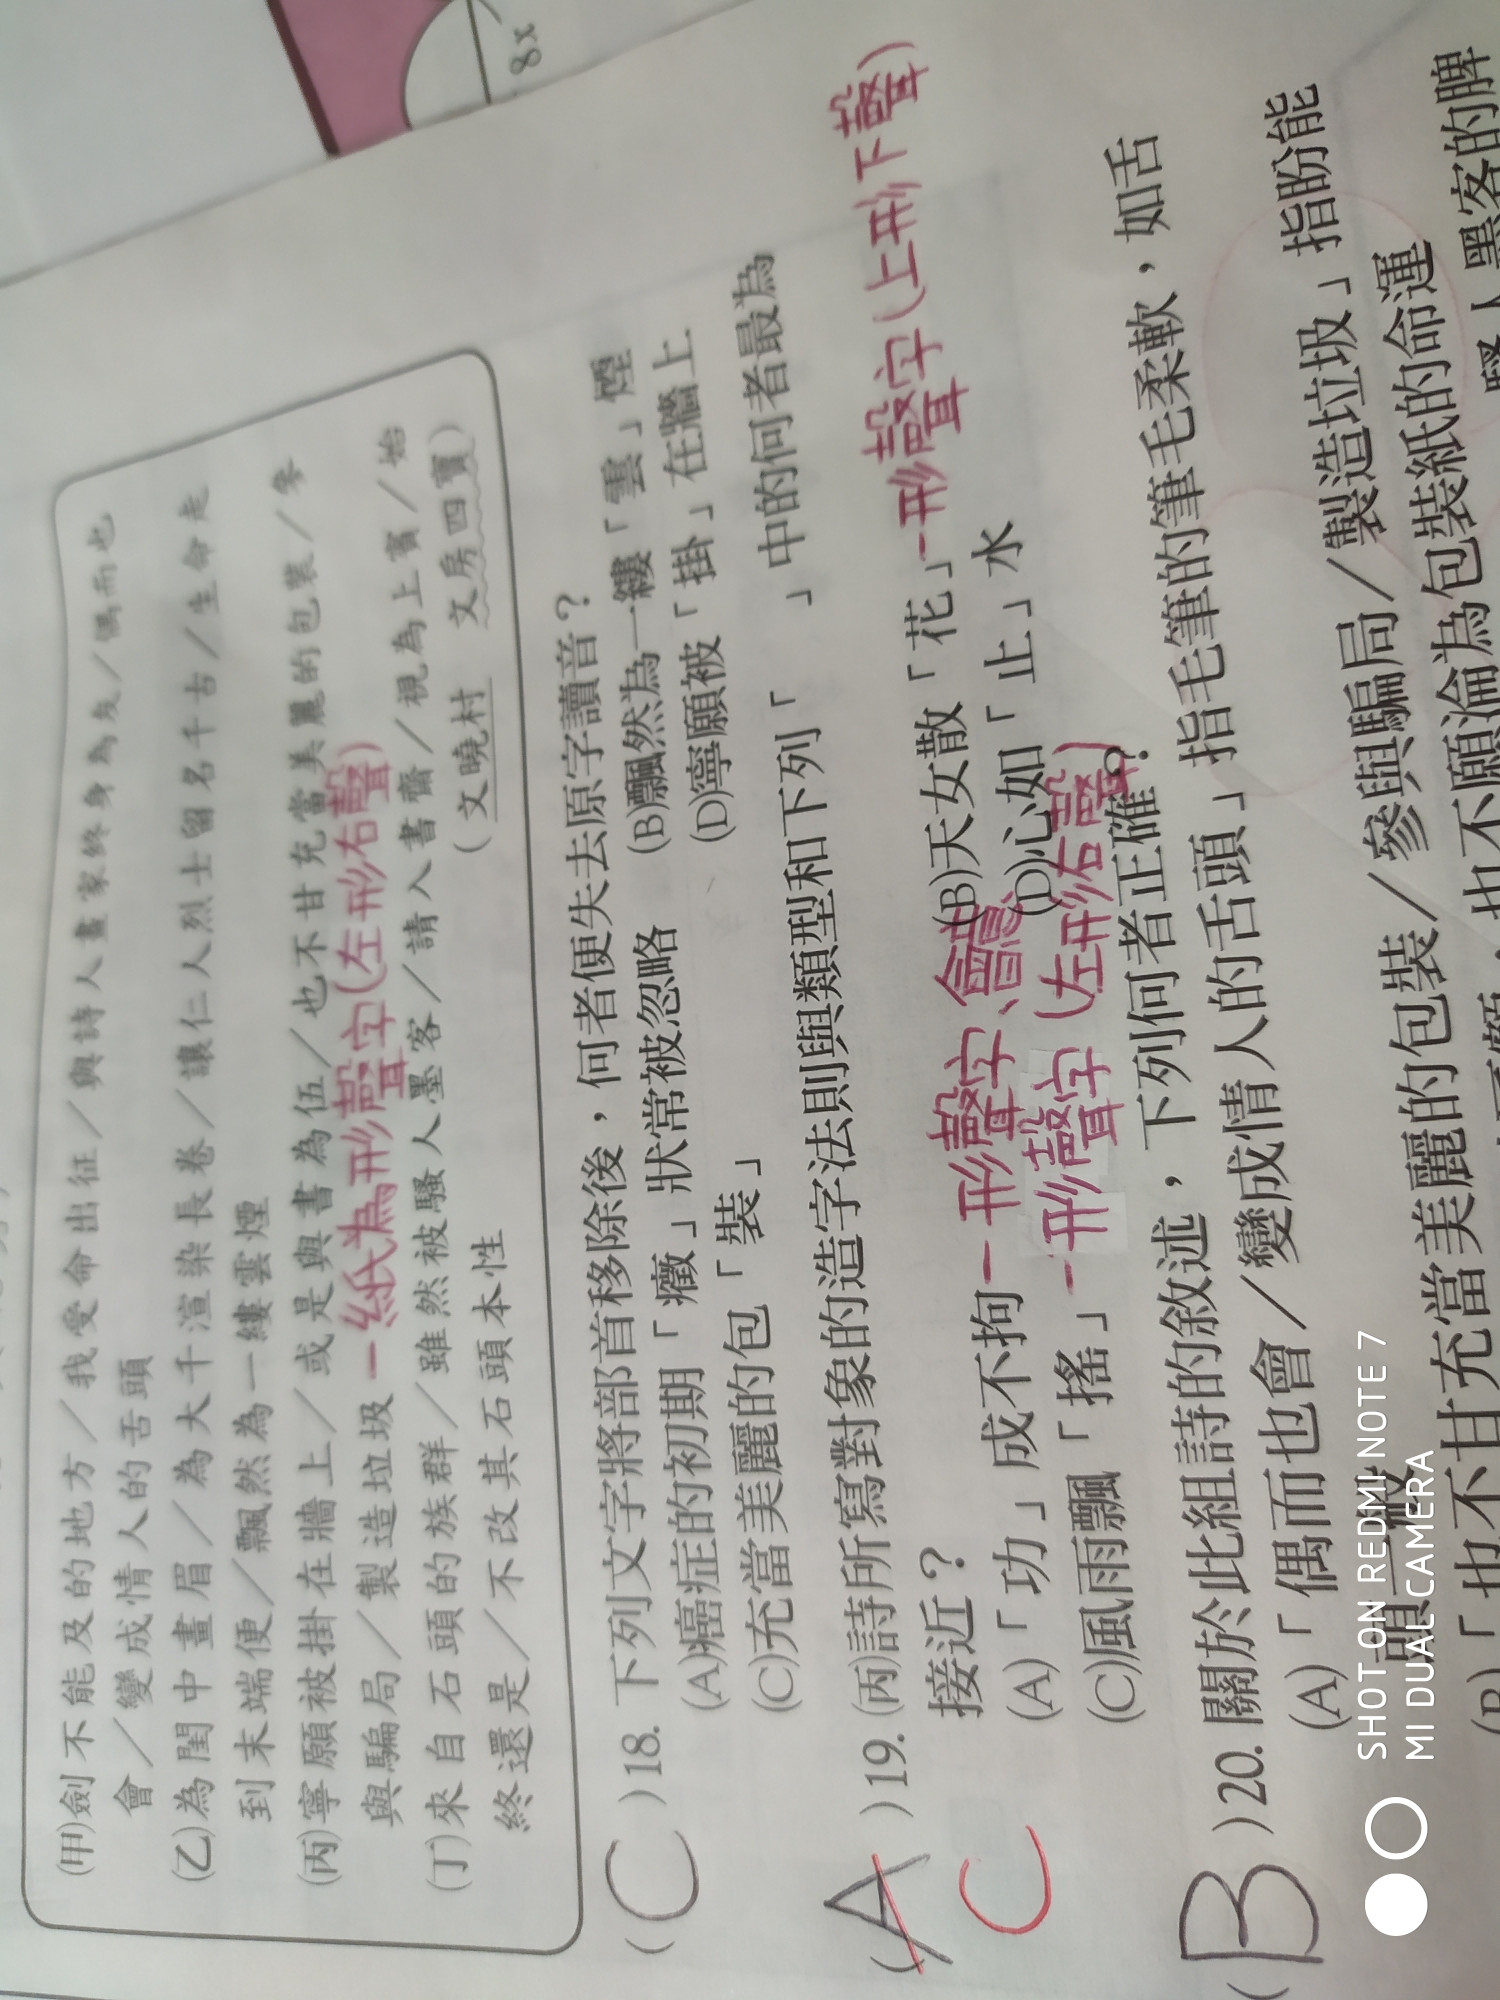 8x
(甲)劍不能及的地方／我受命出征／與詩人畫家終身為友／偶而也
會／變成情人的舌頭
(乙)為閨中畫眉／為大千渲染長卷／讓仁人烈士留名千古／生命走
到末端便／飄然為一縷雲煙
(丙)寧願被掛在牆上／或是與書為伍／也不甘充當美麗的包裝／參
與騙局／製造垃圾 -紙為形聲字(左形右聲)
(丁)來自石頭的族群／雖然被騷人墨客／請入書齋／視為上賓／始
終還是／不改其石頭本性
(文曉村 文房四寶)
(C)18. 下列文字將部首移除後，何者便失去原字讀音？
(A)癌症的初期「癥」狀常被忽略 (B)飄然為一縷「雲」煙
(C)充當美麗的包「裝」 (D)寧願被「掛」在牆上
(A)19. (丙)詩所寫對象的造字法則與類型和下列「 」中的何者最為
C 接近？
(A)「功」成不拘 -形聲字、會意 (B)天女散「花」-形聲字(上形下聲)
(C)風雨飄「搖」-形聲字(左形右聲) (D)心如「止」水
(B)20. 關於此組詩的敘述，下列何者正確？
(A)「偶而也會／變成情人的舌頭」指毛筆的筆毛柔軟，如舌
頭一般
(B)「也不甘充當美麗的包裝／參與騙局／製造垃圾」指盼能
也不願淪為包裝紙的命運
騷人墨客的脾
SHOT ON REDMI NOTE 7
MI DUAL CAMERA